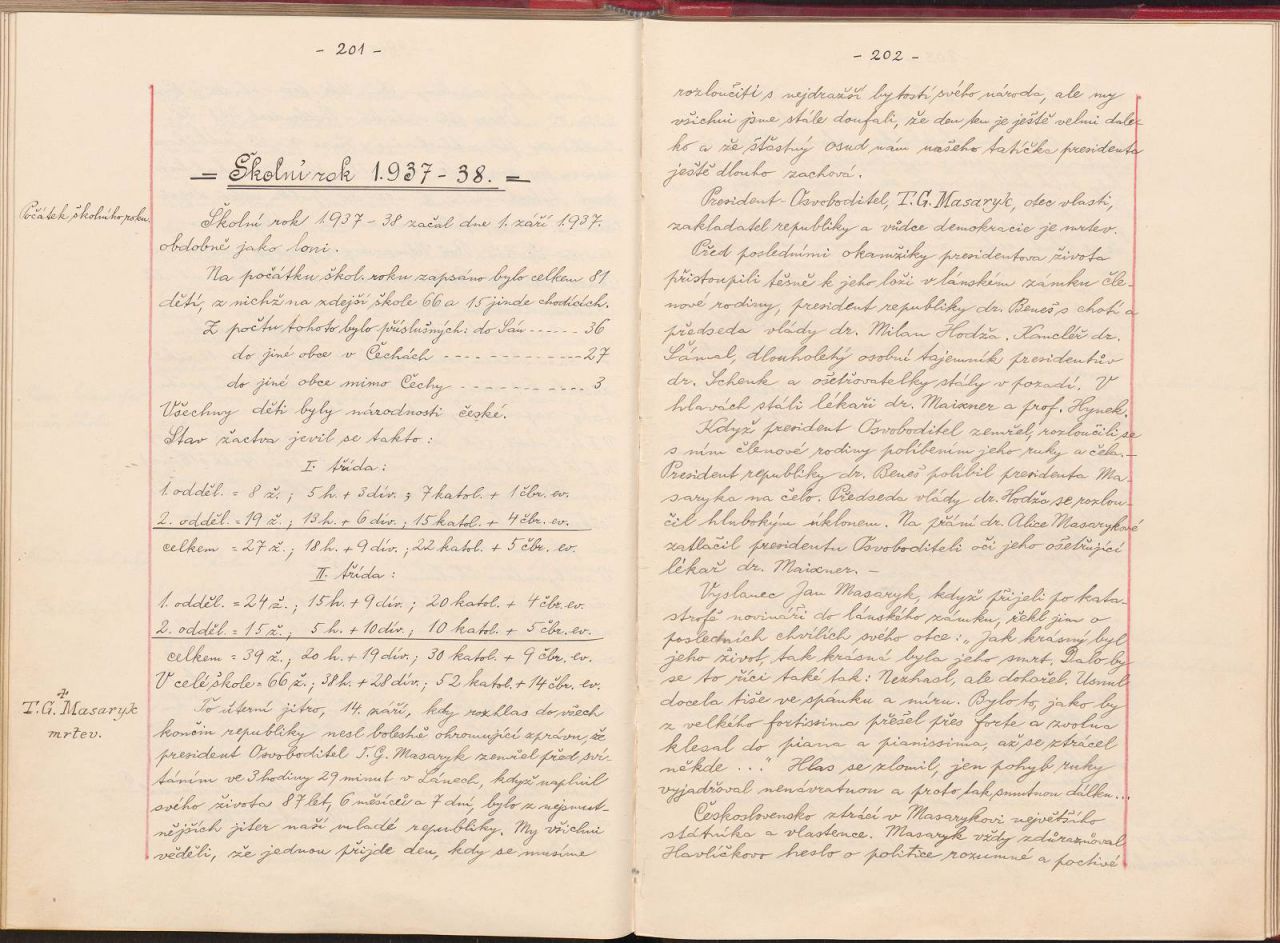 - 201 -
= Školní rok 1.937 - 38. =
Počátek školního roku.
Školní rok 1.937 - 38 začal dne 1. září 1.937.
obdobně jako loni.
Na počátku škol. roku zapsáno bylo celkem 81
dětí, z nichž na zdejší škole 66 a 15 jinde chodících.
Z počtu tohoto bylo příslušných: do Sán ----- 36
do jiné obce v Čechách ------------ 27
do jiné obce mimo Čechy ----------- 3
Všechny děti byly národnosti české.
Stav žactva jevil se takto:
I. třída:
1. odděl. = 8 ž.; 5 h. + 3 dív.; 7 katol. + 1 čbr. ev.
2. odděl. = 19 ž.; 13 h. + 6 dív.; 15 katol. + 4 čbr. ev.
celkem = 27 ž.; 18 h. + 9 dív.; 22 katol. + 5 čbr. ev.
II. třída:
1. odděl. = 24 ž.; 15 h. + 9 dív.; 20 katol. + 4 čbr. ev.
2. odděl. = 15 ž.; 5 h. + 10 dív.; 10 katol. + 5 čbr. ev.
celkem = 39 ž.; 20 h. + 19 dív.; 30 katol. + 9 čbr. ev.
V celé škole = 66 ž.; 38 h. + 28 dív.; 52 katol. + 14 čbr. ev.
T. G. Masaryk
mrtev.
To úterní jitro, 14. září, kdy rozhlas do všech
končin republiky nesl bolestně ohromující zprávu, že
president Osvoboditel T. G. Masaryk zemřel před sví-
táním ve 3 hodiny 29 minut v Lánech, když naplnil
svého života 87 let, 6 měsíců a 7 dní, bylo z nejsmut-
nějších jiter naší mladé republiky. My všichni
věděli, že jednou přijde den, kdy se musíme
- 202 -
rozloučiti s nejdražší bytostí svého národa, ale my
všichni jsme stále doufali, že den ten je ještě velmi dale-
ko a že šťastný osud nám našeho tatíčka presidenta
ještě dlouho zachová.
President - Osvoboditel, T. G. Masaryk, otec vlasti,
zakladatel republiky a vůdce demokracie je mrtev.
Před posledními okamžiky presidentova života
přistoupili těsně k jeho loži v lánském zámku čle-
nové rodiny, president republiky dr. Beneš s chotí a
předseda vlády dr. Milan Hodža. Kancléř dr.
Šámal, dlouholetý osobní tajemník presidentův
dr. Schenk a ošetřovatelky stály v pozadí. V
hlavách stáli lékaři dr. Maixner a prof. Hynek.
Když president Osvoboditel zemřel, rozloučili se
s ním členové rodiny políbením jeho ruky a čela. -
President republiky dr. Beneš políbil presidenta Ma-
saryka na čelo. Předseda vlády dr. Hodža se rozlou-
čil hlubokým úklonem. Na přání dr. Alice Masarykové
zatlačil presidentu Osvoboditeli oči jeho ošetřující
lékař dr. Maixner. -
Vyslanec Jan Masaryk, když přijeli po kata-
strofě novináři do lánského zámku, řekl jim o
posledních chvílích svého otce: „Jak krásný byl
jeho život, tak krásná byla jeho smrt. Dalo by
se to říci také tak: Nezhasl, ale dohořel. Usnul
docela tiše ve spánku a míru. Bylo to, jako by
z velkého fortissima přešel přes forte a zvolna
klesal do piana a pianissima, až se ztrácel
někde ..." Hlas se zlomil, jen pohyb ruky
vyjadřoval nenávratnou a proto tak smutnou dálku...
Československo ztrácí v Masarykovi největšího
státníka a vlastence. Masaryk vždy zdůrazňoval
Havlíčkovo heslo o politice rozumné a poctivé